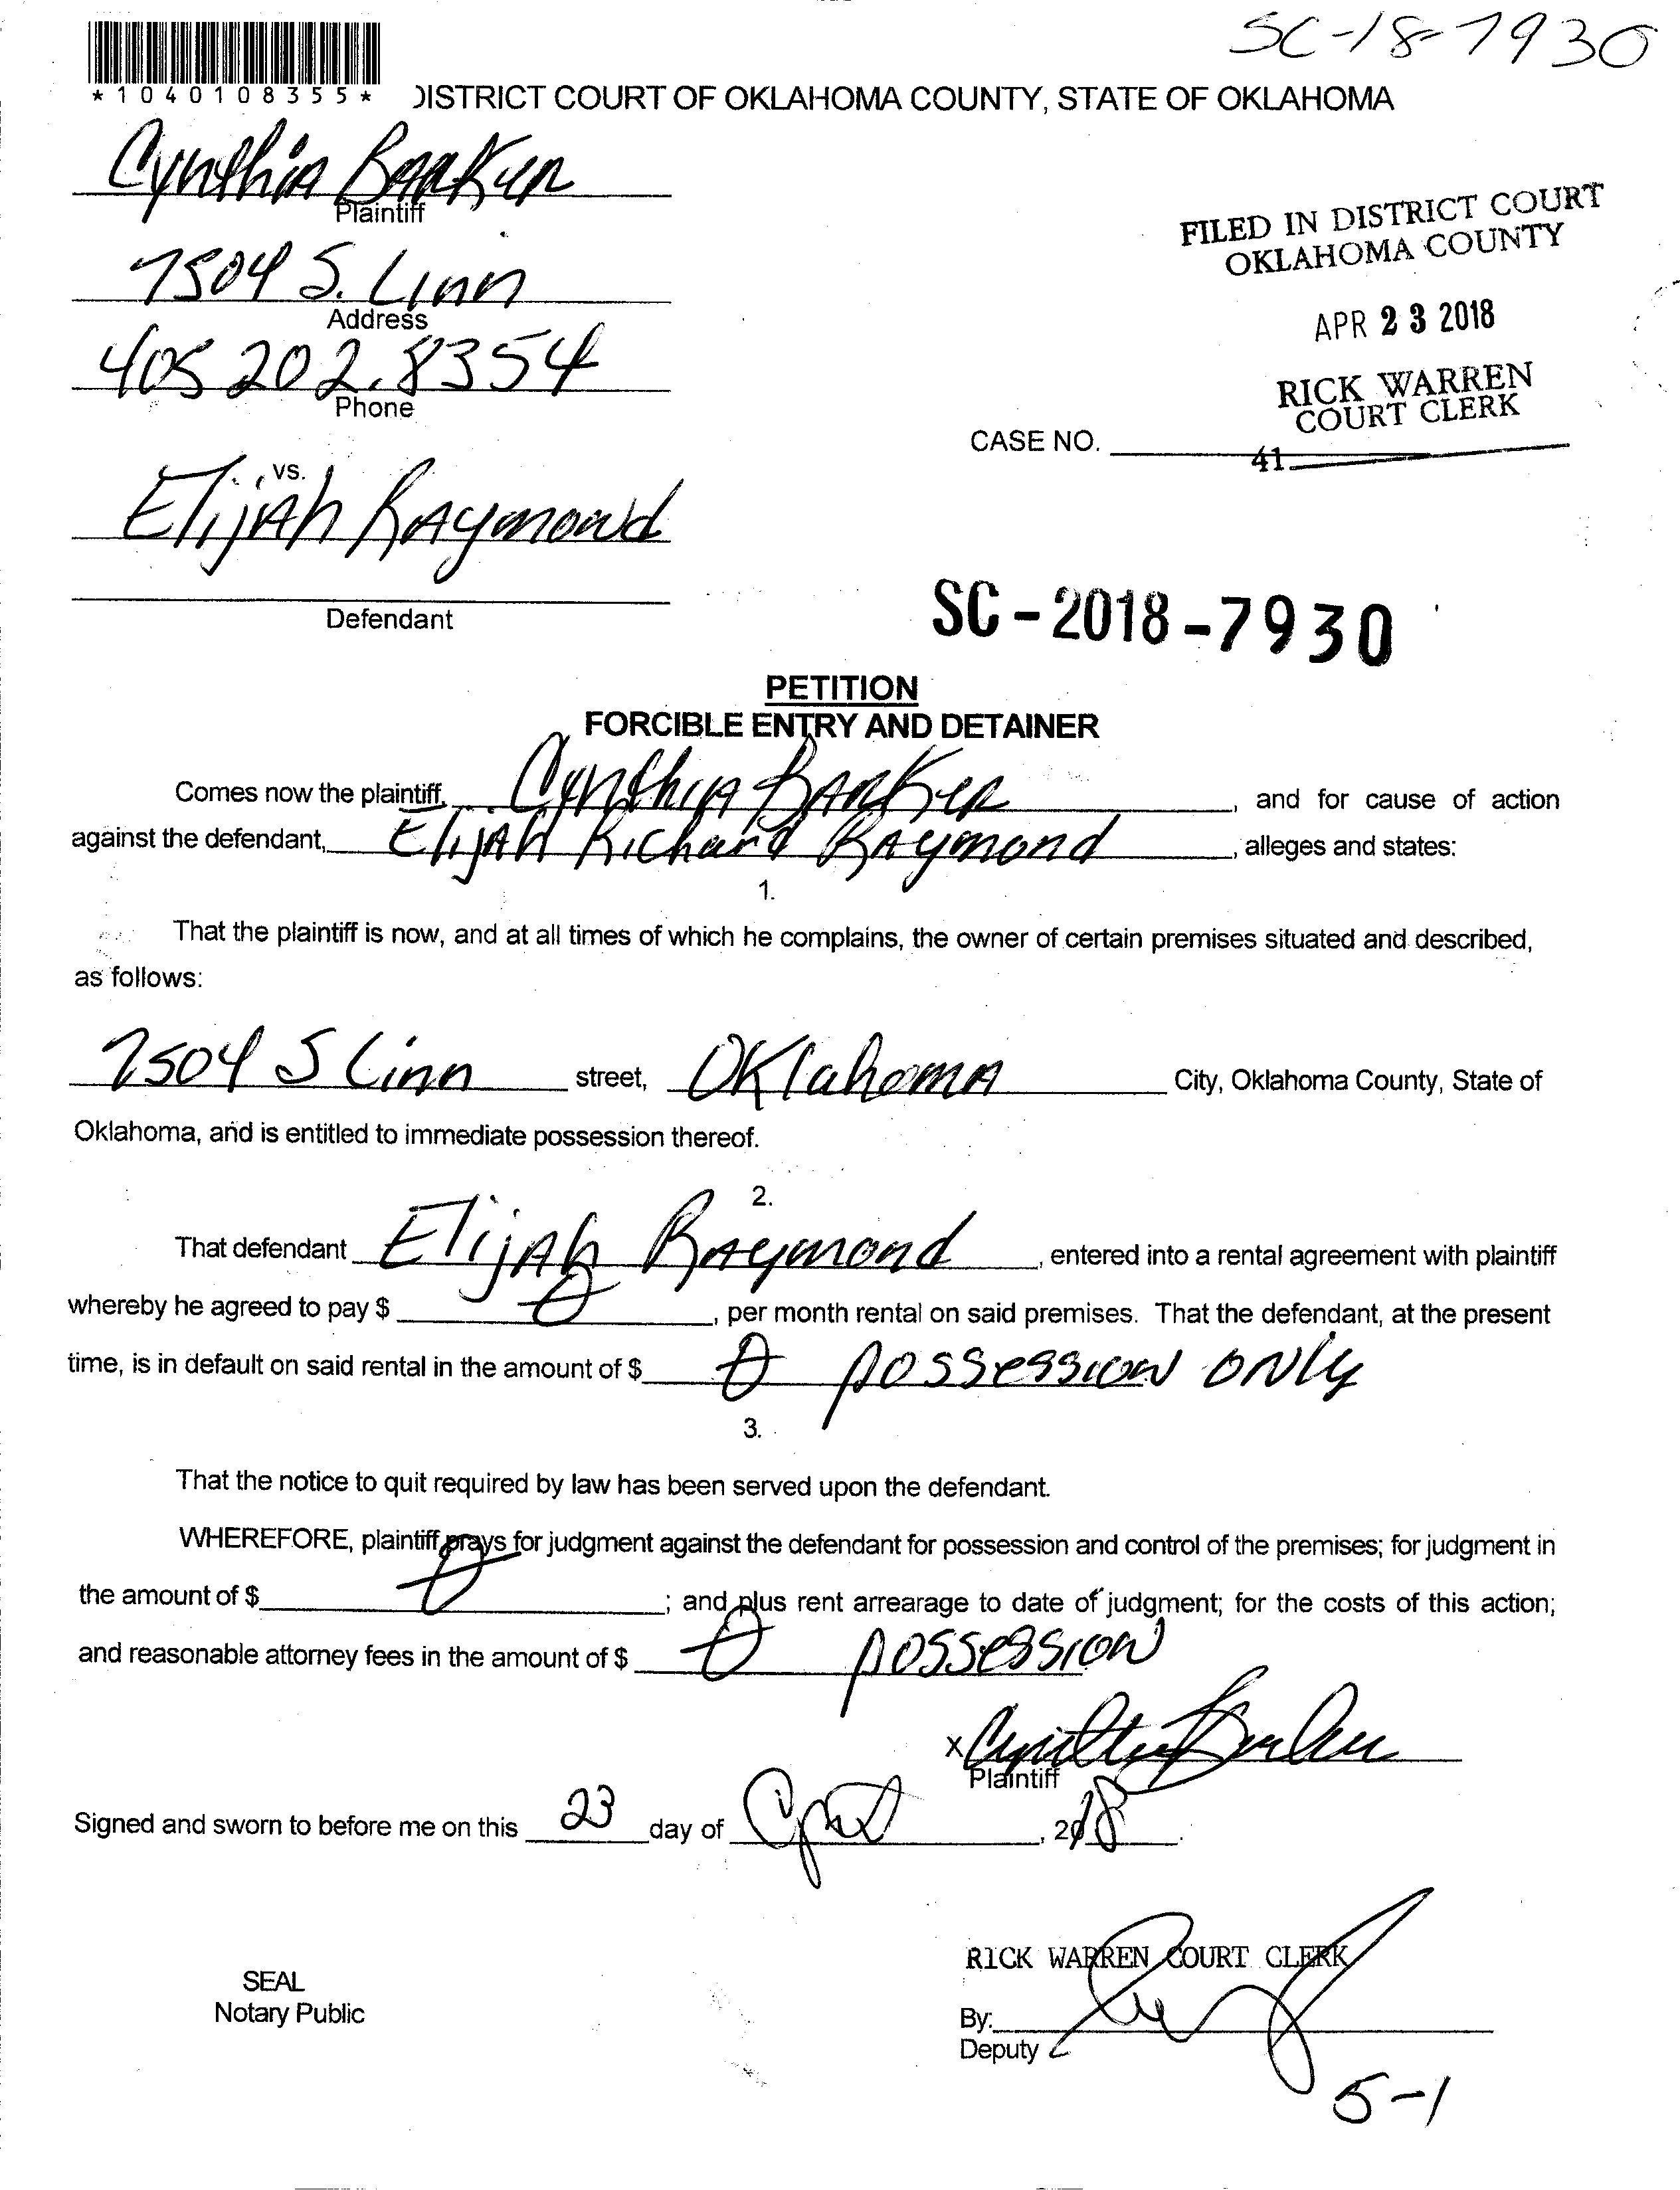 SC-18-7930
*1040108355*
DISTRICT COURT OF OKLAHOMA COUNTY, STATE OF OKLAHOMA
Cynthia Barker
Plaintiff
FILED IN DISTRICT COURT
OKLAHOMA COUNTY
7504 S. Linn
Address
APR 23 2018
405 202.8354
Phone
RICK WARREN
COURT CLERK
CASE NO.
41
vs.
Elijah Raymond
Defendant
SC-2018-7930
PETITION
FORCIBLE ENTRY AND DETAINER
Comes now the plaintiff, Cynthia Barker, and for cause of action
against the defendant, Elijah Richard Raymond, alleges and states:
1.
That the plaintiff is now, and at all times of which he complains, the owner of certain premises situated and described,
as follows:
7504 S Linn street, Oklahoma City, Oklahoma County, State of
Oklahoma, and is entitled to immediate possession thereof.
2.
That defendant Elijah Raymond, entered into a rental agreement with plaintiff
whereby he agreed to pay $ 0, per month rental on said premises. That the defendant, at the present
time, is in default on said rental in the amount of $ 0 possession only
3.
That the notice to quit required by law has been served upon the defendant.
WHEREFORE, plaintiff prays for judgment against the defendant for possession and control of the premises; for judgment in
the amount of $ 0; and plus rent arrearage to date of judgment; for the costs of this action;
and reasonable attorney fees in the amount of $ 0 possession
x Cynthia Barker
Plaintiff
Signed and sworn to before me on this 23 day of April, 2018.
RICK WARREN COURT CLERK
SEAL
Notary Public
By:
Deputy
5-1